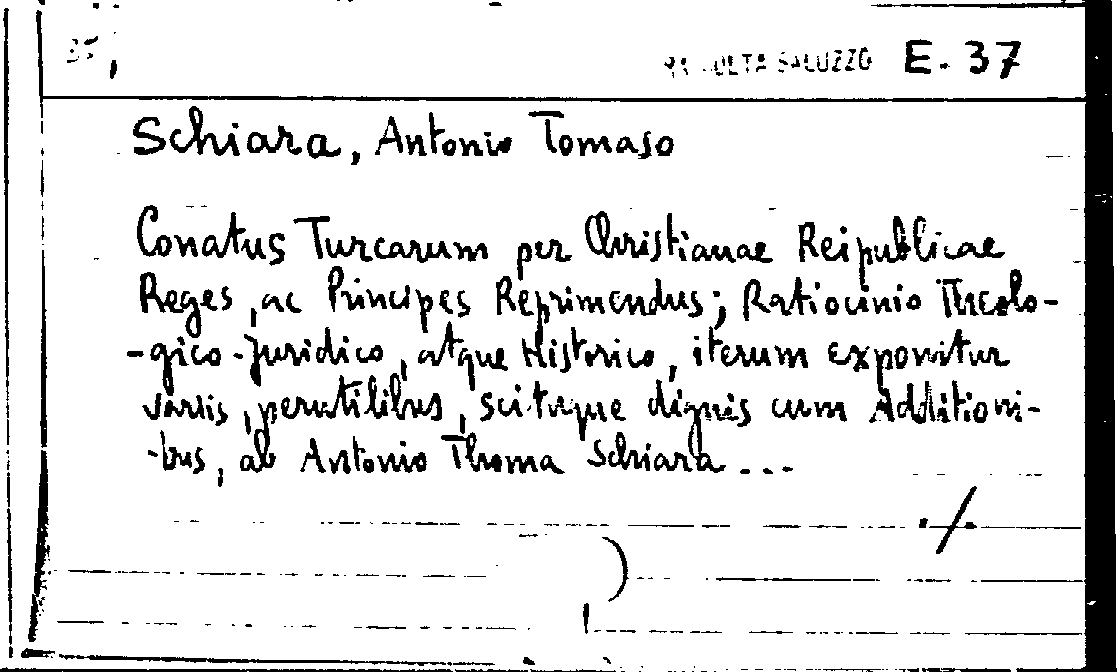 35,
RACCOLTA SALUZZO E. 37
Schiara, Antonio Tomaso
Conatus Turcarum per Christianae Reipublicae
Reges, ac Principes Reprimendus; Ratiocinio Theolo-
-gico-Juridico, atque Historico, iterum exponitur
variis, perutilibus, scituque dignis cum Additioni-
-bus, ab Antonio Thoma Schiara ...
./.